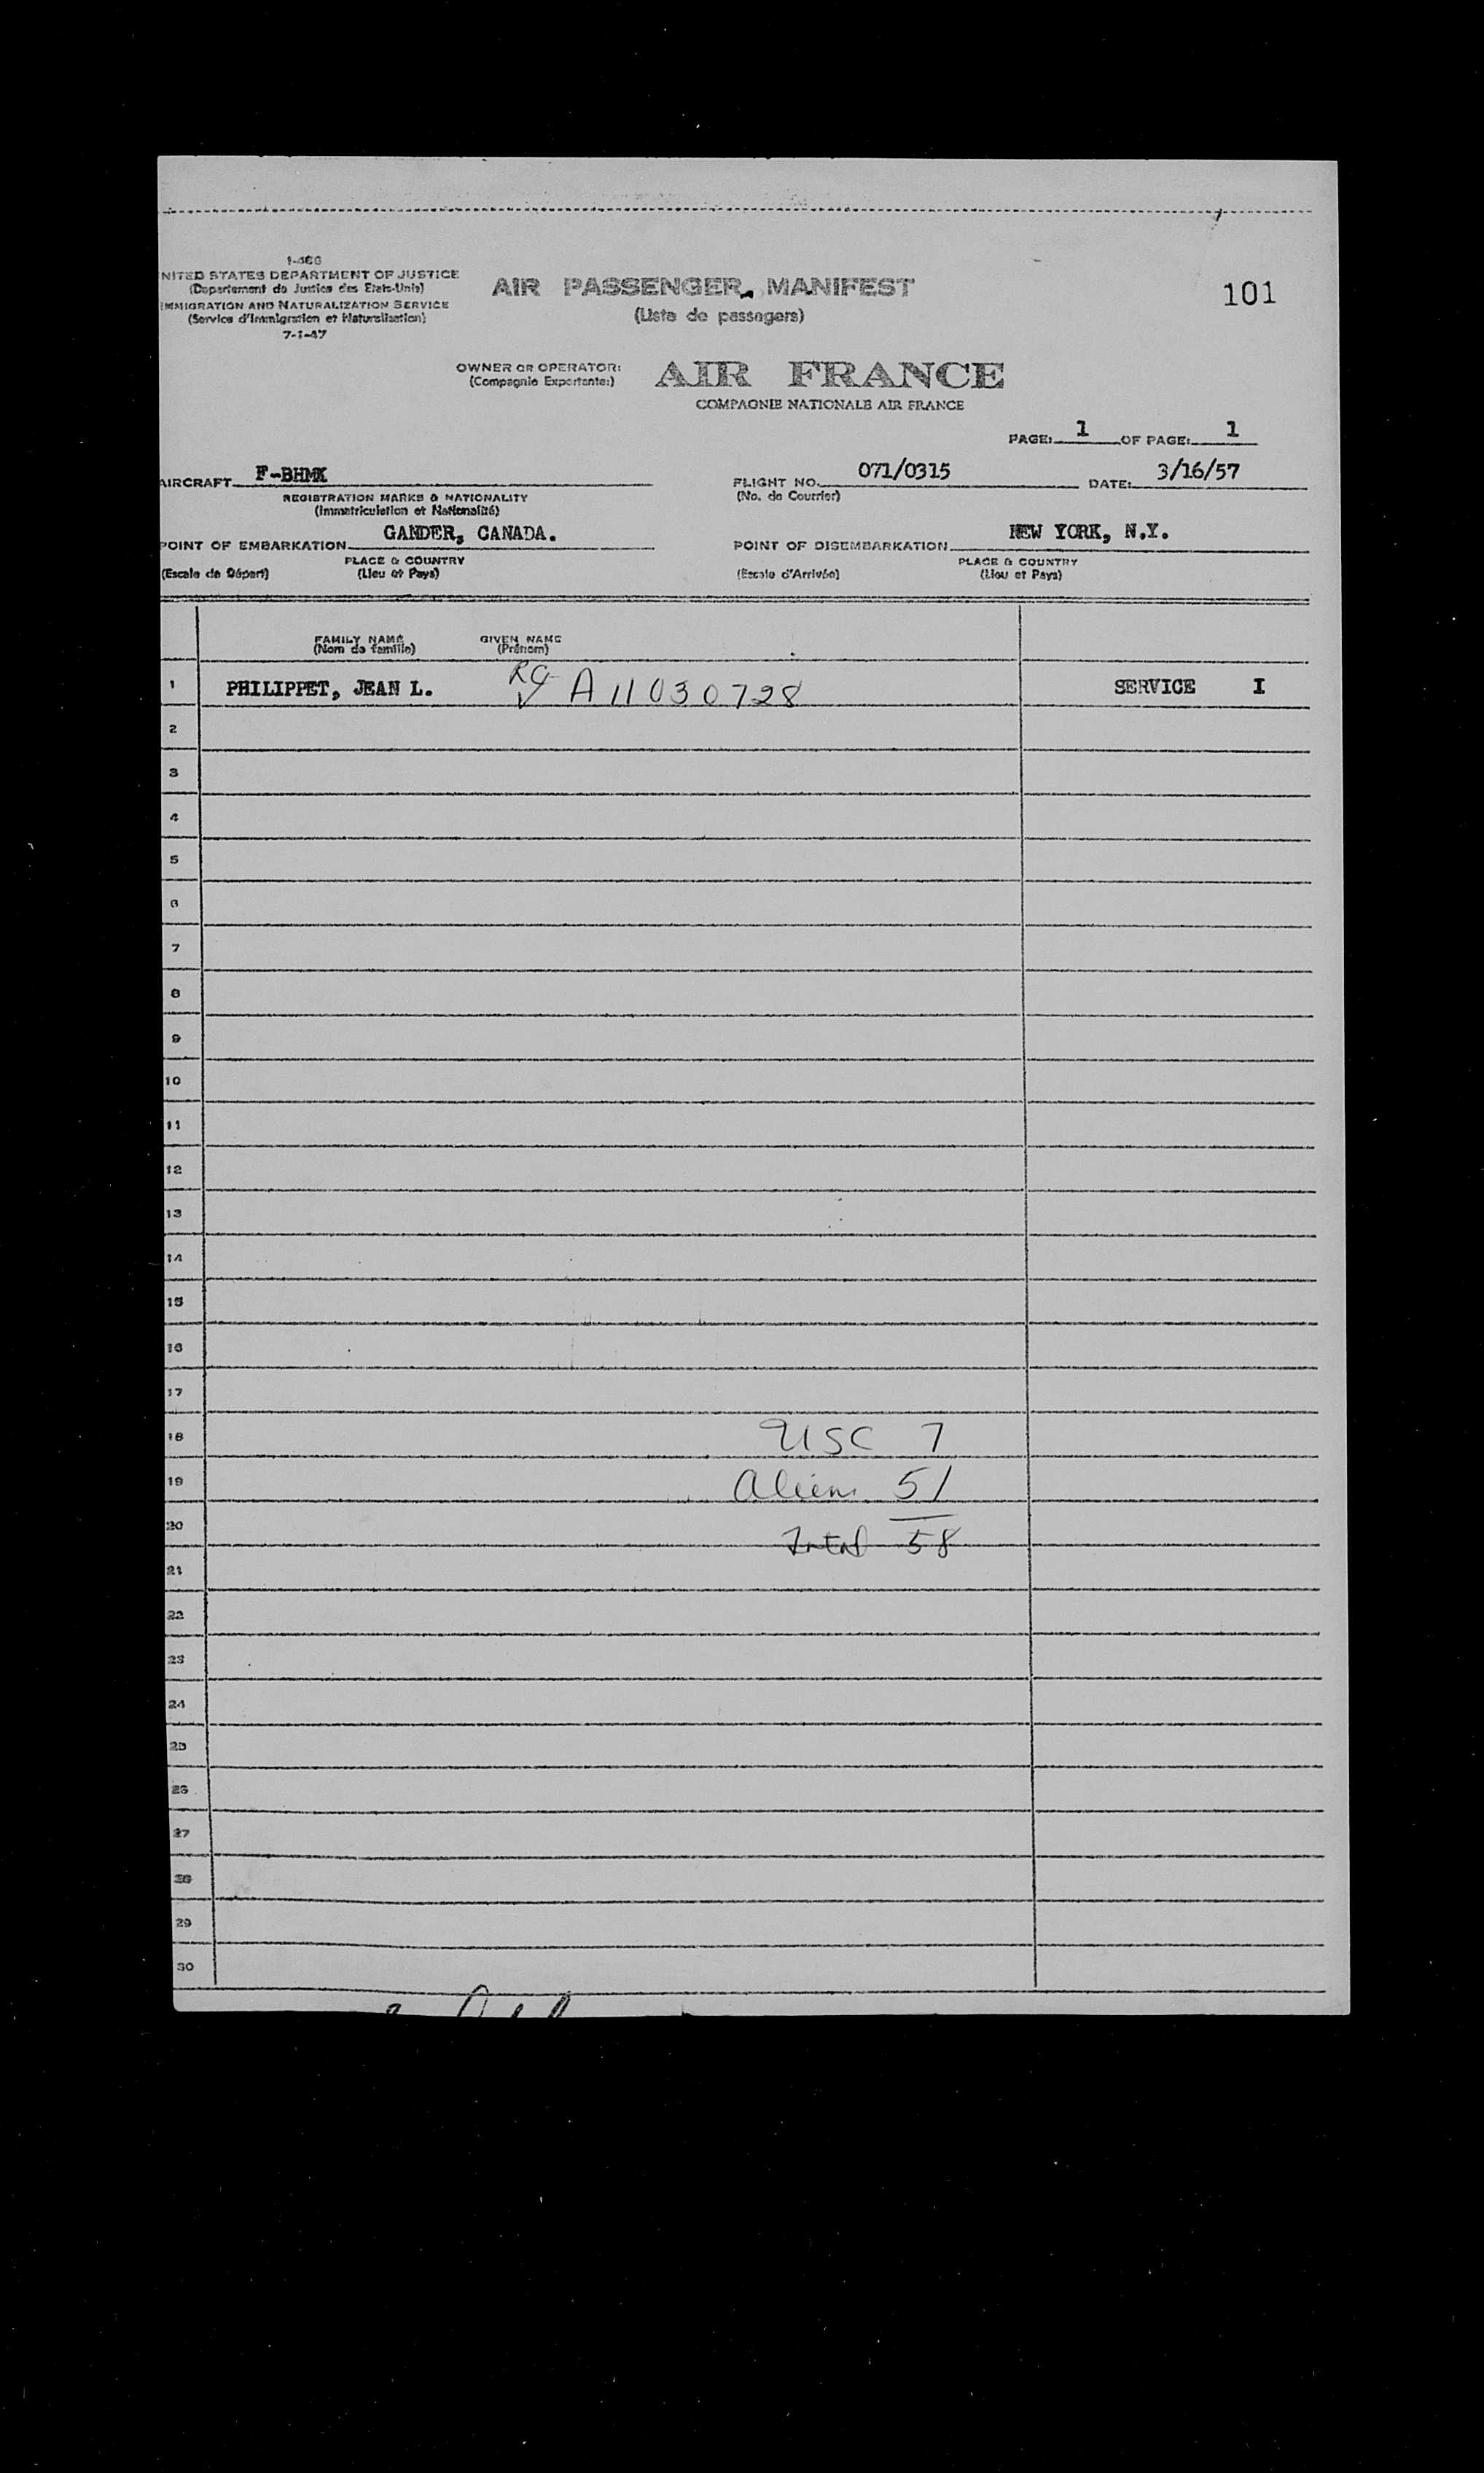 I-466
NITED STATES DEPARTMENT OF JUSTICE
(Departement de Justice des Etats-Unis)
IMMIGRATION AND NATURALIZATION SERVICE
(Service d'Immigration et Naturalisation)
7-1-47
AIR PASSENGER MANIFEST
(Liste de passagers)
101
OWNER OR OPERATOR:
(Compagnie Exportante:)
AIR FRANCE
COMPAGNIE NATIONALE AIR FRANCE
PAGE: 1 OF PAGE: 1
AIRCRAFT F-BHMK
REGISTRATION MARKS & NATIONALITY
(Immatriculation et Nationalité)
FLIGHT NO. 071/0315 DATE: 3/16/57
(No. de Courrier)
POINT OF EMBARKATION GANDER, CANADA.
PLACE & COUNTRY
(Escale de Départ) (Lieu et Pays)
POINT OF DISEMBARKATION NEW YORK, N.Y.
PLACE & COUNTRY
(Escale d'Arrivée) (Lieu et Pays)
FAMILY NAME GIVEN NAME
(Nom de famille) (Prénom)
1 PHILIPPET, JEAN L. A11030728 SERVICE I
2
3
4
5
6
7
8
9
10
11
12
13
14
15
16
17
18 USC 7
19 Aliens 51
20 Total 58
21
22
23
24
25
26
27
28
29
30